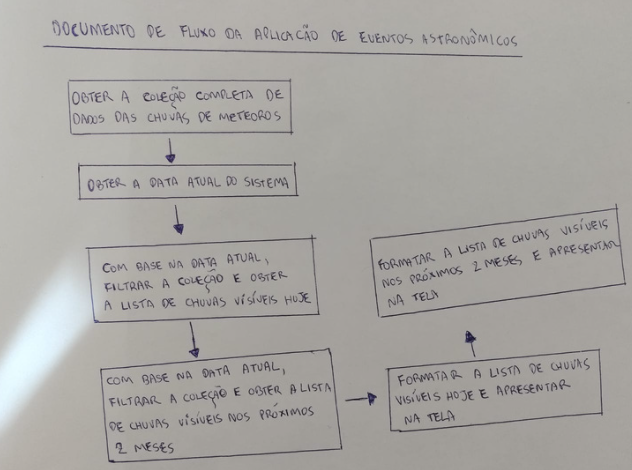 DOCUMENTO DE FLUXO DA APLICAÇÃO DE EVENTOS ASTRONÔMICOS
OBTER A COLEÇÃO COMPLETA DE
DADOS DAS CHUVAS DE METEOROS
OBTER A DATA ATUAL DO SISTEMA
COM BASE NA DATA ATUAL,
FILTRAR A COLEÇÃO E OBTER
A LISTA DE CHUVAS VISÍVEIS HOJE
COM BASE NA DATA ATUAL,
FILTRAR A COLEÇÃO E OBTER A LISTA
DE CHUVAS VISÍVEIS NOS PRÓXIMOS
2 MESES
FORMATAR A LISTA DE CHUVAS
VISÍVEIS HOJE E APRESENTAR
NA TELA
FORMATAR A LISTA DE CHUVAS VISÍVEIS
NOS PRÓXIMOS 2 MESES E APRESENTAR
NA TELA